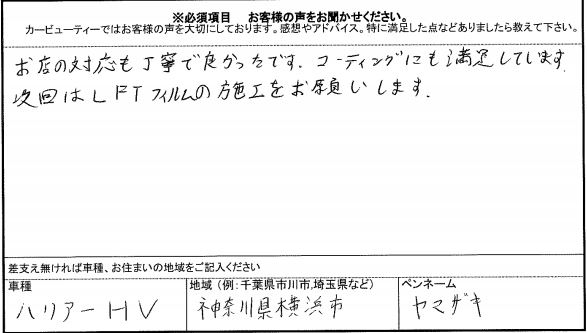 ※必須項目 お客様の声をお聞かせください。
カービューティーではお客様の声を大切にしております。感想やアドバイス。特に満足した点などありましたら教えて下さい。
お店の対応も丁寧で良かったです。コーティングにも満足しています。
次回はLFTフィルムの施工をお願いします。
差支え無ければ車種、お住まいの地域をご記入ください
車種 地域（例：千葉県市川市,埼玉県など） ペンネーム
ハリアーHV 神奈川県横浜市 ヤマザキ